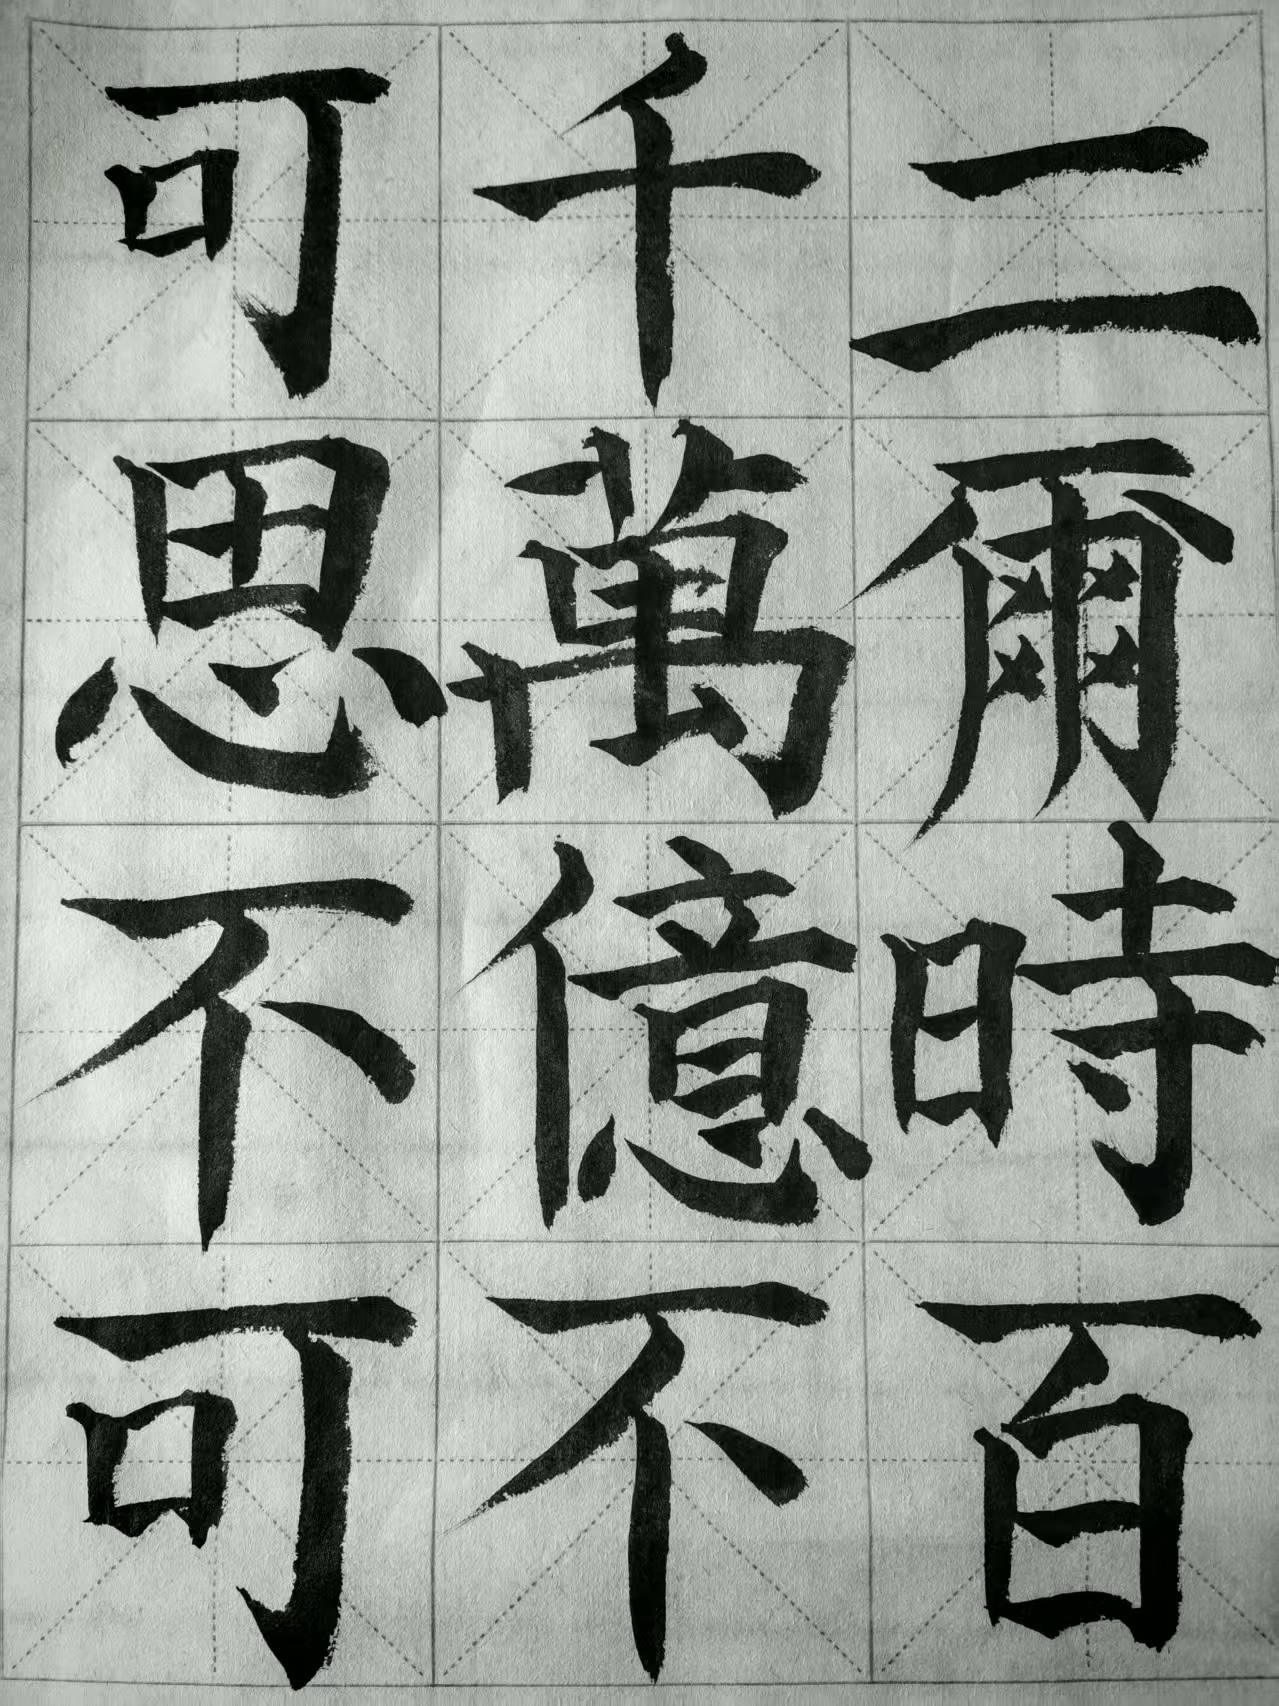 二爾時百
千萬億不
可思不可